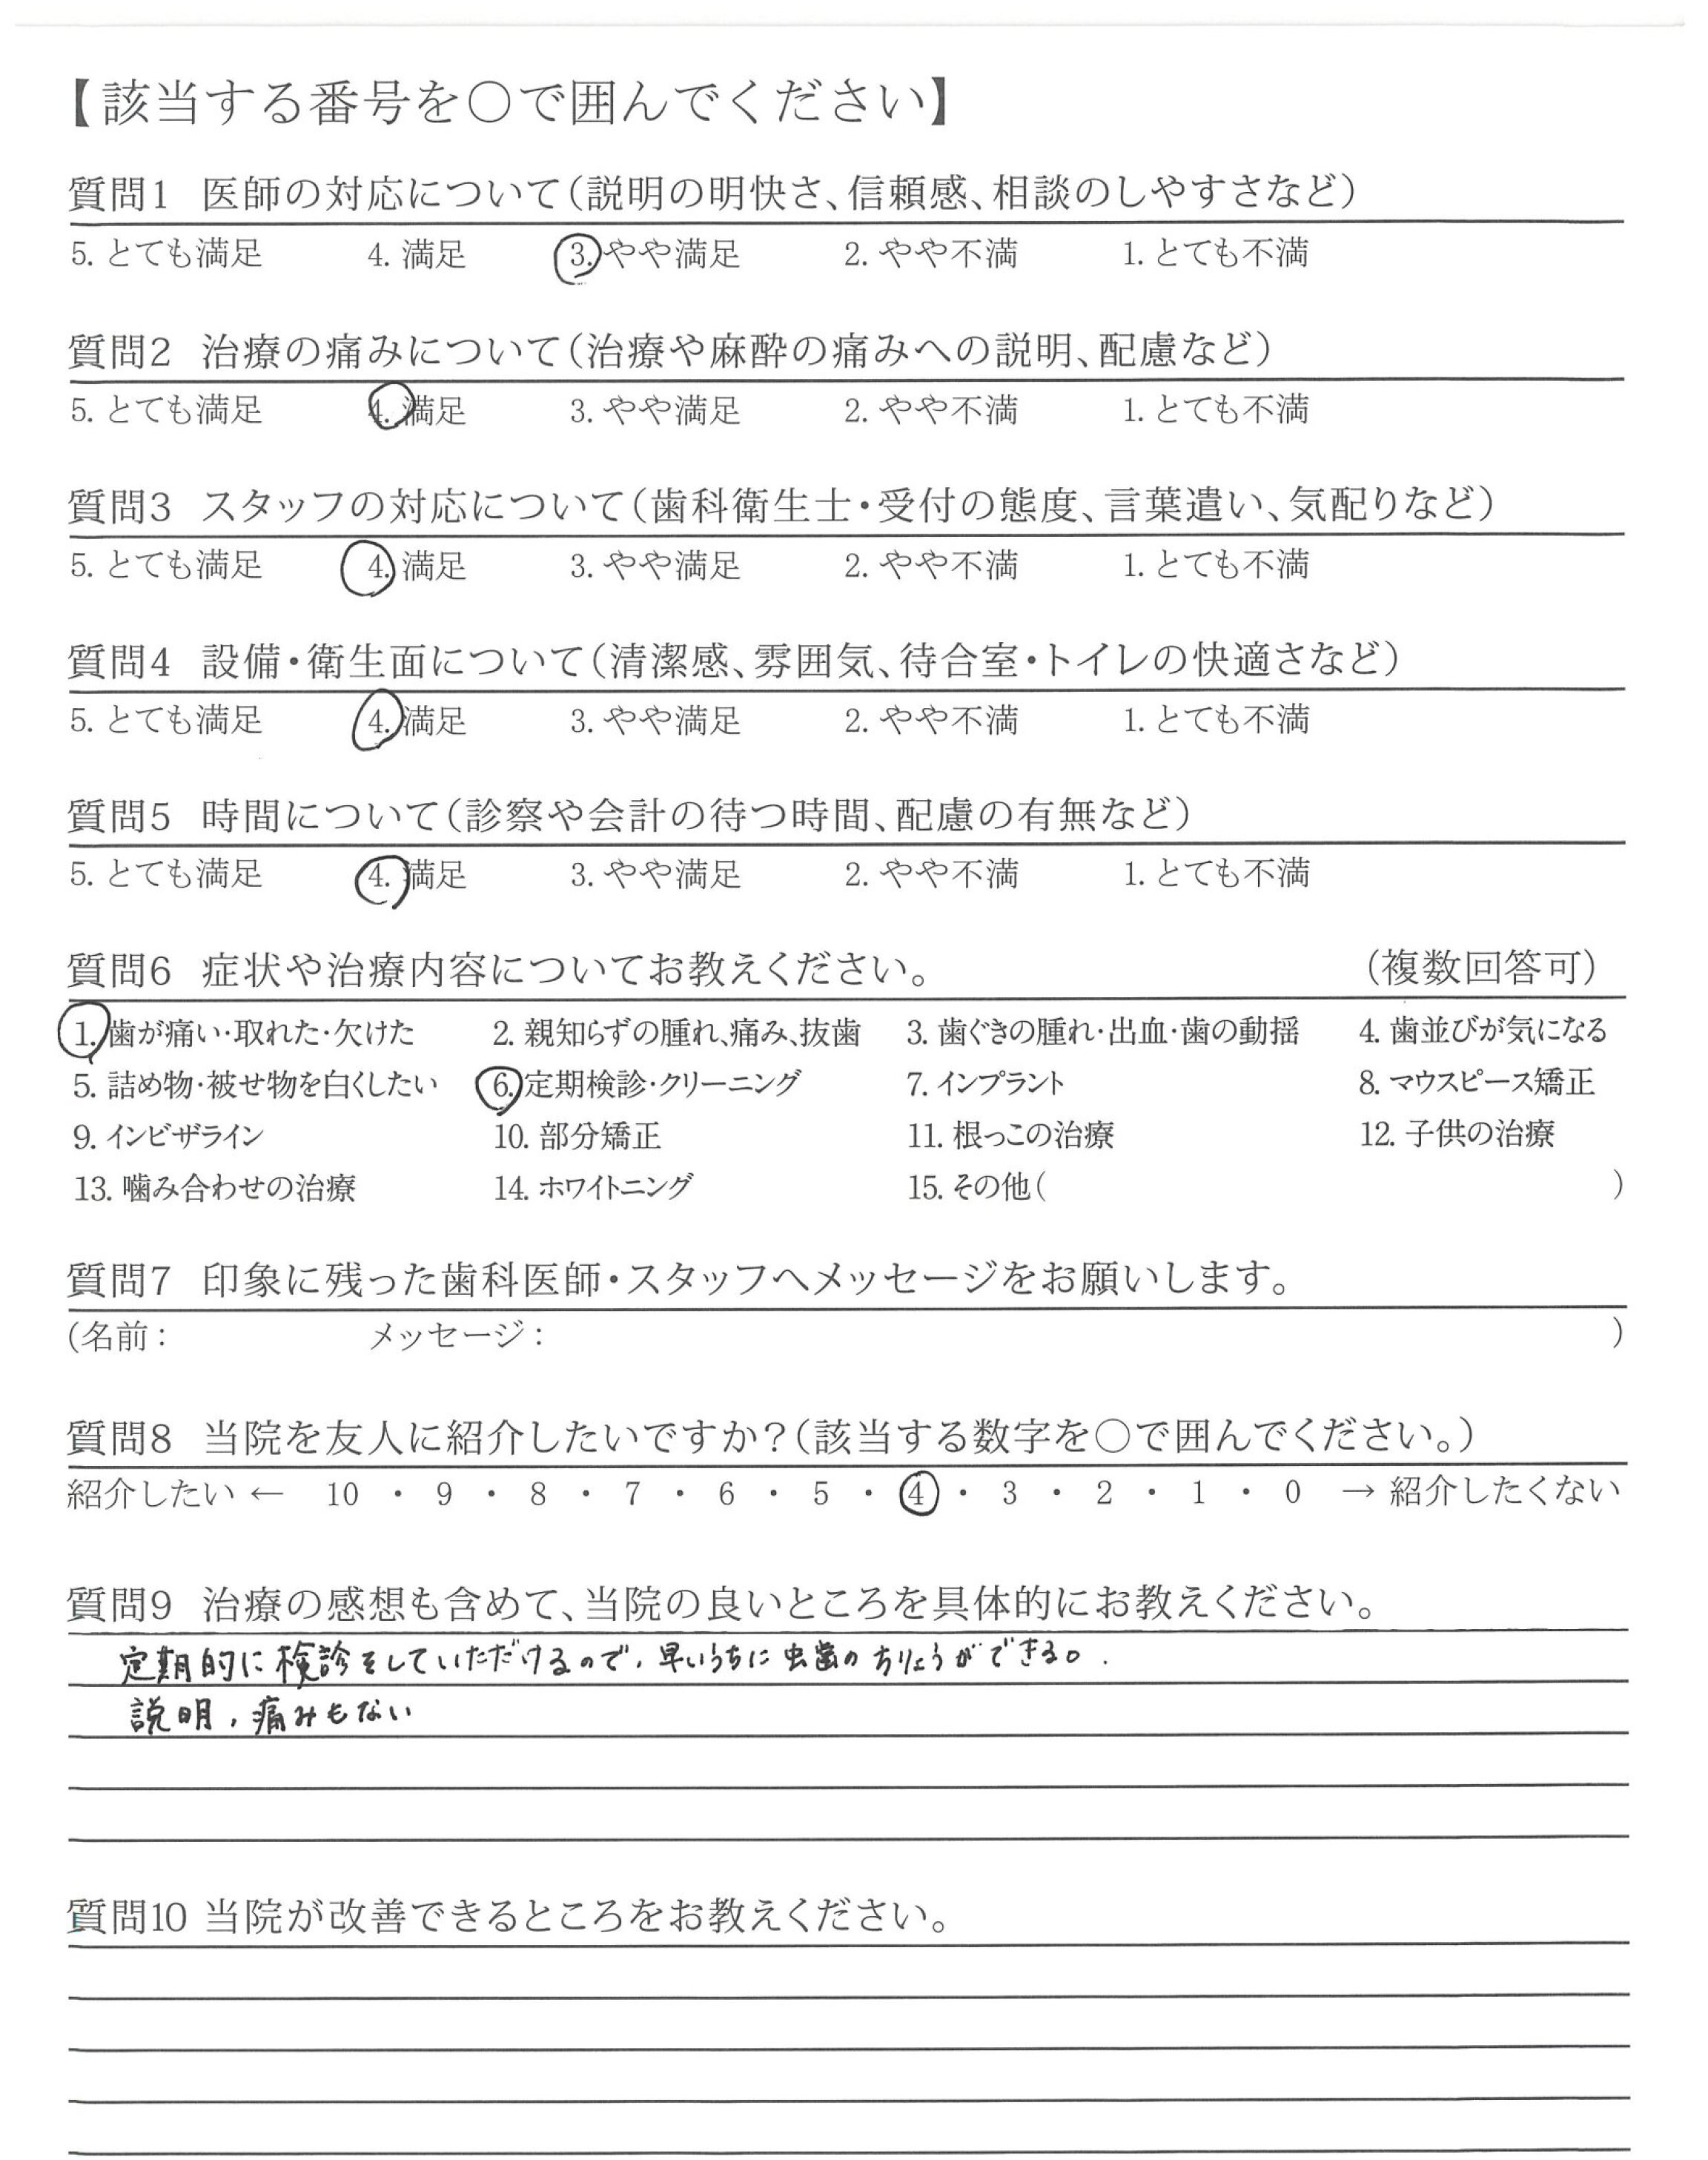 【該当する番号を○で囲んでください】
質問1 医師の対応について(説明の明快さ、信頼感、相談のしやすさなど)
5. とても満足 4. 満足 3. やや満足 2. やや不満 1. とても不満
質問2 治療の痛みについて(治療や麻酔の痛みへの説明、配慮など)
5. とても満足 4. 満足 3. やや満足 2. やや不満 1. とても不満
質問3 スタッフの対応について(歯科衛生士・受付の態度、言葉遣い、気配りなど)
5. とても満足 4. 満足 3. やや満足 2. やや不満 1. とても不満
質問4 設備・衛生面について(清潔感、雰囲気、待合室・トイレの快適さなど)
5. とても満足 4. 満足 3. やや満足 2. やや不満 1. とても不満
質問5 時間について(診察や会計の待つ時間、配慮の有無など)
5. とても満足 4. 満足 3. やや満足 2. やや不満 1. とても不満
質問6 症状や治療内容についてお教えください。 (複数回答可)
1. 歯が痛い・取れた・欠けた 2. 親知らずの腫れ、痛み、抜歯 3. 歯ぐきの腫れ・出血・歯の動揺 4. 歯並びが気になる
5. 詰め物・被せ物を白くしたい 6. 定期検診・クリーニング 7. インプラント 8. マウスピース矯正
9. インビザライン 10. 部分矯正 11. 根っこの治療 12. 子供の治療
13. 噛み合わせの治療 14. ホワイトニング 15. その他( )
質問7 印象に残った歯科医師・スタッフへメッセージをお願いします。
(名前: メッセージ: )
質問8 当院を友人に紹介したいですか?(該当する数字を○で囲んでください。)
紹介したい ← 10 ・ 9 ・ 8 ・ 7 ・ 6 ・ 5 ・ 4 ・ 3 ・ 2 ・ 1 ・ 0 → 紹介したくない
質問9 治療の感想も含めて、当院の良いところを具体的にお教えください。
定期的に検診をしていただけるので、早いうちに虫歯のちりょうができる。
説明、痛みもない
質問10 当院が改善できるところをお教えください。